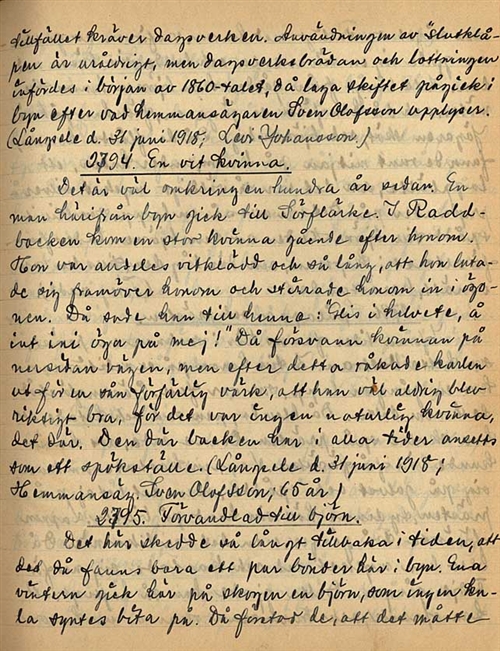 tillfället kräver dagsverken. Användningen av "slutklå-
pen är uråldrigt, men dagsverksbrädan och lottningen
infördes i början av 1860-talet, då laga skiftet pågick i
byn efter vad hemmansägaren Sven Olofsson upplyser.
(Långsele d. 31 juni 1918; Levi Johansson)
2794. En vit kvinna.
Det är väl omkring en hundra år sedan. En
man härifrån byn gick till Sörflärke. I Radd-
backen kom en stor kvinna gående efter honom.
Hon var alldeles vitklädd och så lång, att hon luta-
de sig framöver honom och stirrade honom in i ögo-
nen. Då sade han till henna: "Glis i helvete, å
int ini öga på mej!" Då försvann kvinnan på
nersidan vägen, men efter detta råkade karlen
ut för en sån förfärlig värk, att han väl aldrig blev
riktigt bra, för det var ingen naturlig kvinna,
det där. Den där backen har i alla tider ansetts
som ett spökställe. (Långsele d. 31 juni 1918;
Hemmansäg. Sven Olofsson, 65 år)
2795. Förvandlad till björn.
Det här skedde så långt tillbaka i tiden, att
det då fanns bara ett par bönder här i byn. Ena
vintern gick här på skogen en björn, som ingen ku-
la syntes bita på. Då förstod de, att det måtte